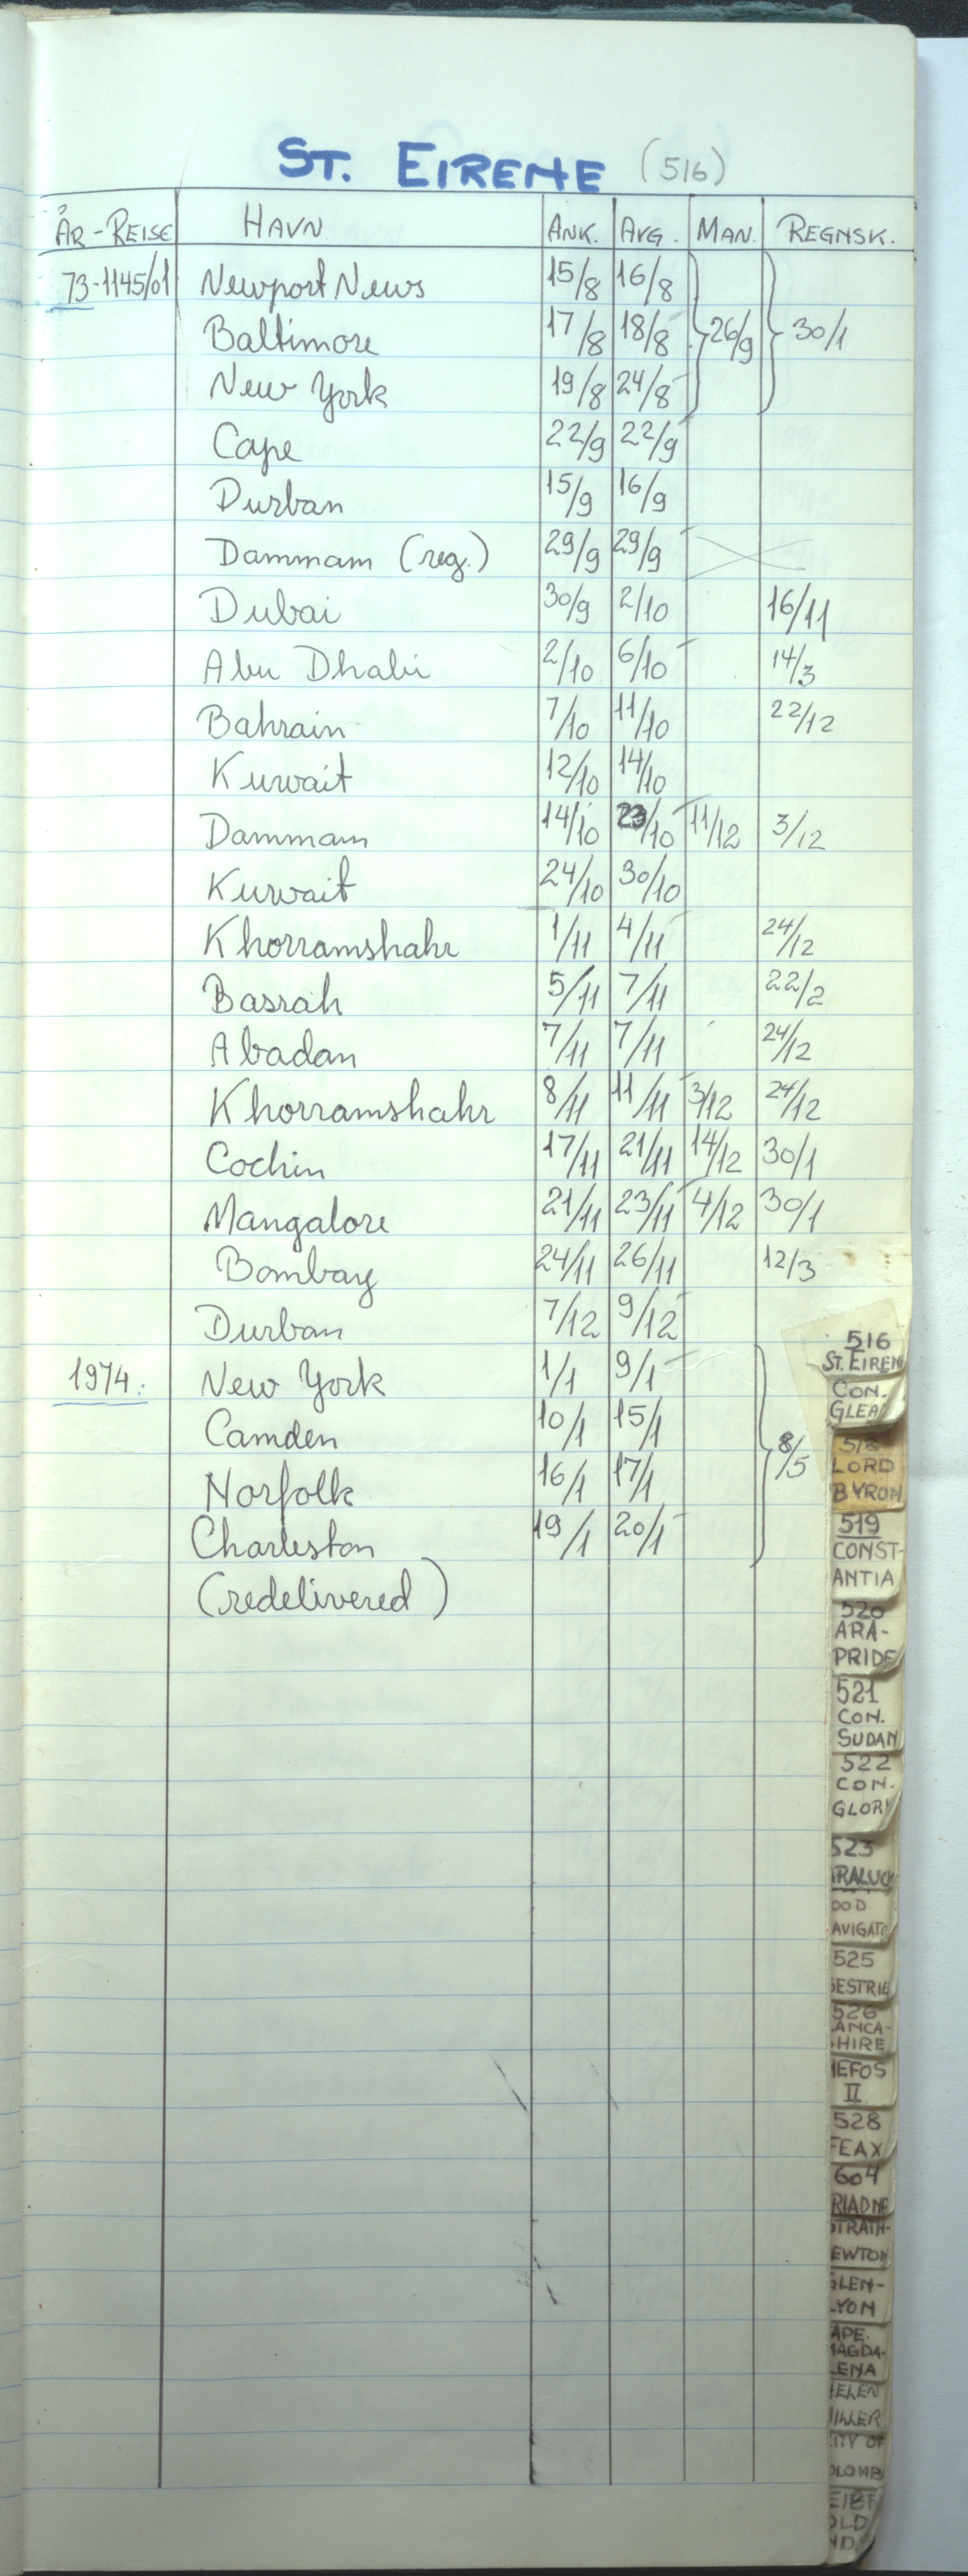 ST. EIRENE (516)
ÅR-REISE HAVN ANK. AVG. MAN. REGNSK.
73-1145/01 Newport News 15/8 16/8
Baltimore 17/8 18/8 26/9 30/1
New York 19/8 24/8
Cape 22/9 22/9
Durban 15/9 16/9
Dammam (reg.) 29/9 29/9
Dubai 30/9 2/10 16/11
Abu Dhabi 2/10 6/10 14/3
Bahrain 7/10 11/10 22/12
Kuwait 12/10 14/10
Dammam 14/10 23/10 11/12 3/12
Kuwait 24/10 30/10
Khorramshahr 1/11 4/11 24/12
Basrah 5/11 7/11 22/2
Abadan 7/11 7/11 24/12
Khorramshahr 8/11 11/11 3/12 24/12
Cochin 17/11 21/11 14/12 30/1
Mangalore 21/11 23/11 4/12 30/1
Bombay 24/11 26/11 12/3
Durban 7/12 9/12
1974: New York 1/1 9/1
Camden 10/1 15/1 8/5
Norfolk 16/1 17/1
Charleston 19/1 20/1
(redelivered)
516
ST. EIREN
CON.
GLEA
518
LORD
BYRON
519
CONST-
ANTIA
520
ARA-
PRIDE
521
CON.
SUDAN
522
CON.
GLORY
523
ARALUCK
OOD
AVIGATO
525
SESTRIE
526
LANCA-
SHIRE
NEFOS
II
528
FEAX
604
RIADNE
STRATH-
EWTON
GLEN-
LYON
APE.
MAGDA-
LENA
HELEN
MILLER
CITY OF
OLOMB